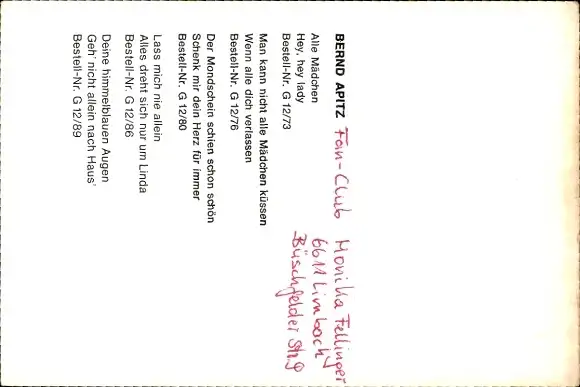 BERND APITZ Fan-Club Monika Fellinger
6611 Limbach
Büschfelder Str. 9
Alle Mädchen
Hey, hey lady
Bestell-Nr. G 12/73
Man kann nicht alle Mädchen küssen
Wenn alle dich verlassen
Bestell-Nr. G 12/76
Der Mondschein schien schon schön
Schenk mir dein Herz für immer
Bestell-Nr. G 12/80
Lass mich nie allein
Alles dreht sich nur um Linda
Bestell-Nr. G 12/86
Deine himmelblauen Augen
Geh' nicht allein nach Haus'
Bestell-Nr. G 12/89